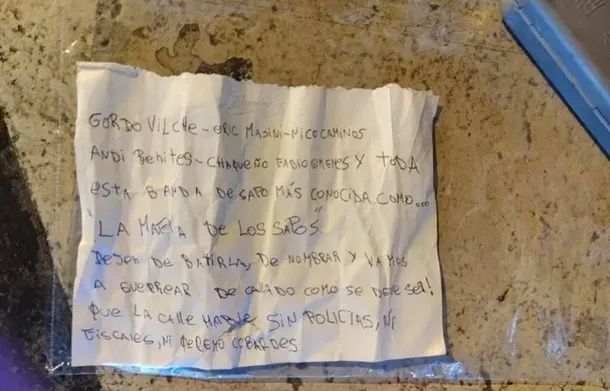 GORDO VILCHE - ERIC MASINI - NICO CAMINOS
ANDI BENITES - CHAQUEÑO FABIO GIMENES Y TODA
ESTA BANDA DE SAPO MÁS CONOCIDA COMO...
"LA MAFIA DE LOS SAPOS"
DEJEN DE BATIRLA, DE NOMBRAR Y VAMOS
A GUERREAR DE CALLADO COMO SE DEVE SER!
QUE LA CALLE HABLE SIN POLICIAS, NI
FISCALES, NI PERIMO COBARDES